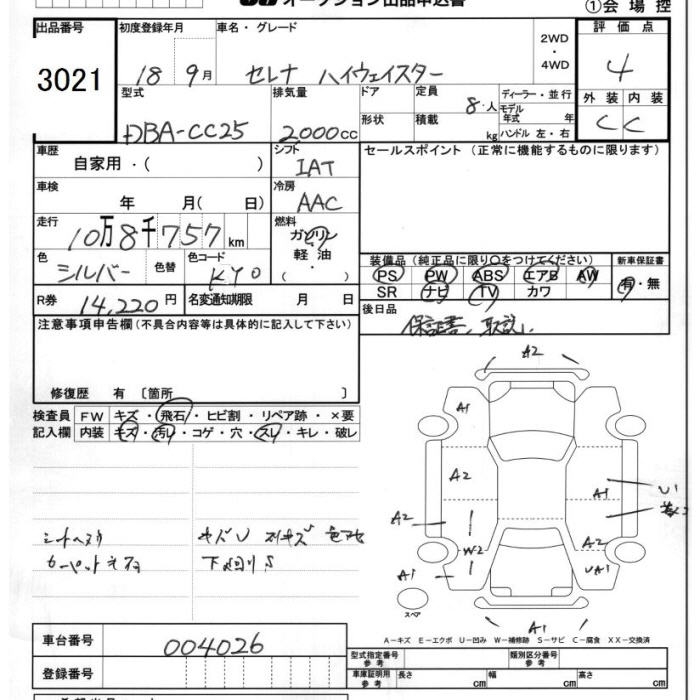 オークション出品申込書
①会場控
出品番号
3021
初度登録年月
18 9月
車名・グレード
セレナ ハイウェイスター
2WD
・
4WD
評価点
4
型式
DBA-CC25
排気量
2000cc
ドア
形状
定員
8人
積載
kg
ディーラー・並行
モデル
年式 年
ハンドル 左・右
外装 内装
C C
車歴
自家用・( )
シフト
IAT
セールスポイント (正常に機能するものに限ります)
車検
年 月( 日)
冷房
AAC
走行
10万8千757km
燃料
ガソリン
軽油
( ・ )
色
シルバー
色替
色コード
KY0
装備品 (純正品に限り〇をつけてください)
PS PW ABS エアB AW
SR ナビ TV カワ
新車保証書
有・無
R券
14,220円
名変通知期限 月 日
後日品
保証書、取説、
注意事項申告欄 (不具合内容等は具体的に記入して下さい)
修復歴 有 〔箇所 〕
検査員
記入欄
FW キズ・飛石・ヒビ割・リペア跡・×要
内装 キズ・汚レ・コゲ・穴・スレ・キレ・破レ
A2
A1
A2
A1
A2
W2
A2
A1
UA1
A1
スペア
A-キズ E-エクボ U-凹み W-補修跡 S-サビ C-腐食 XX-交換済
車台番号
004026
登録番号
型式指定番号
参考
類別区分番号
参考
車庫証明用
参考
長さ cm
幅 cm
高さ cm